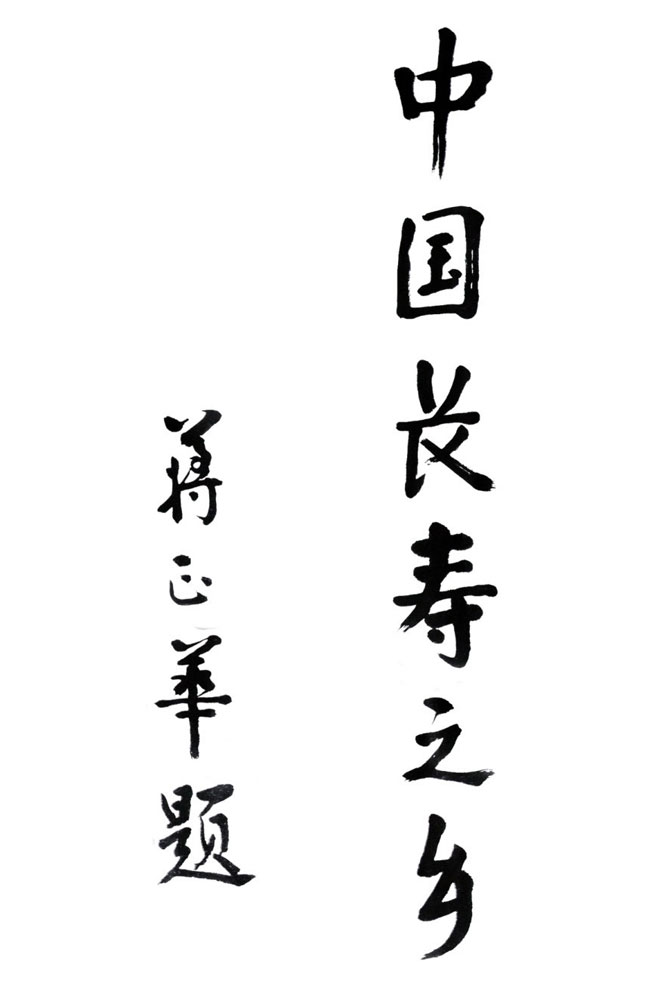 中国长寿之乡
蒋正華题